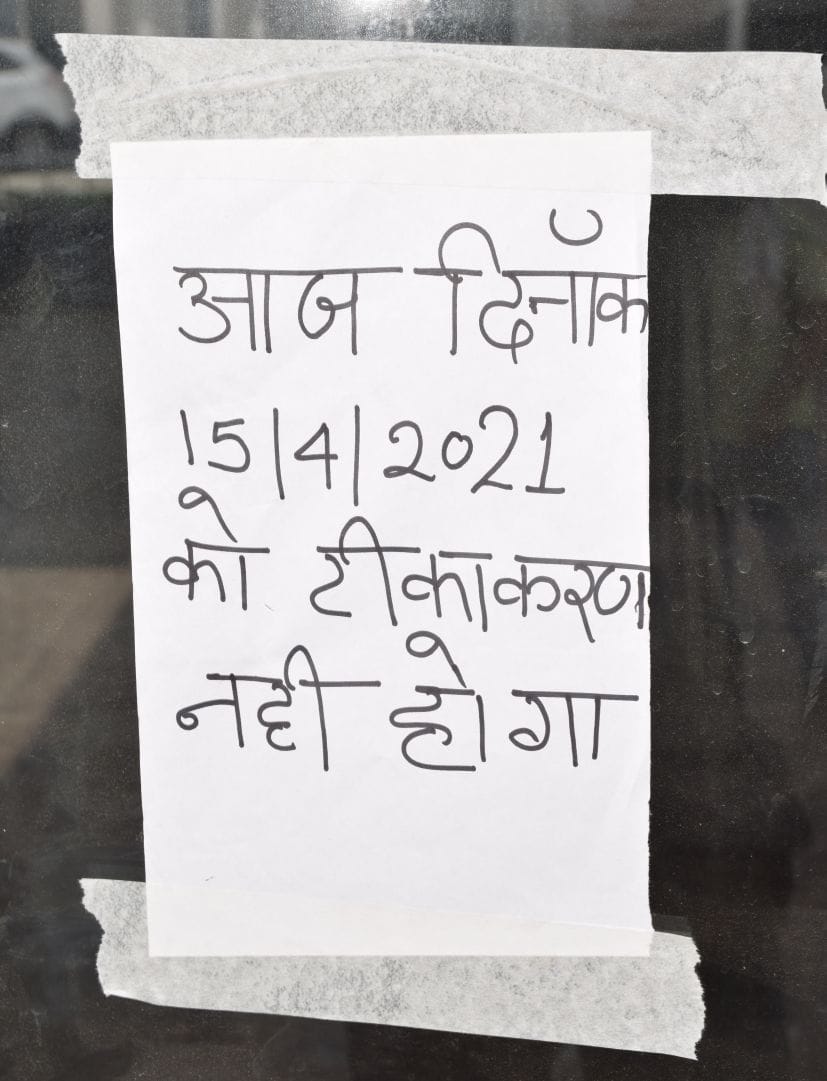 आज दिनाँक
15/4/2021
को टीकाकरण
नही होगा